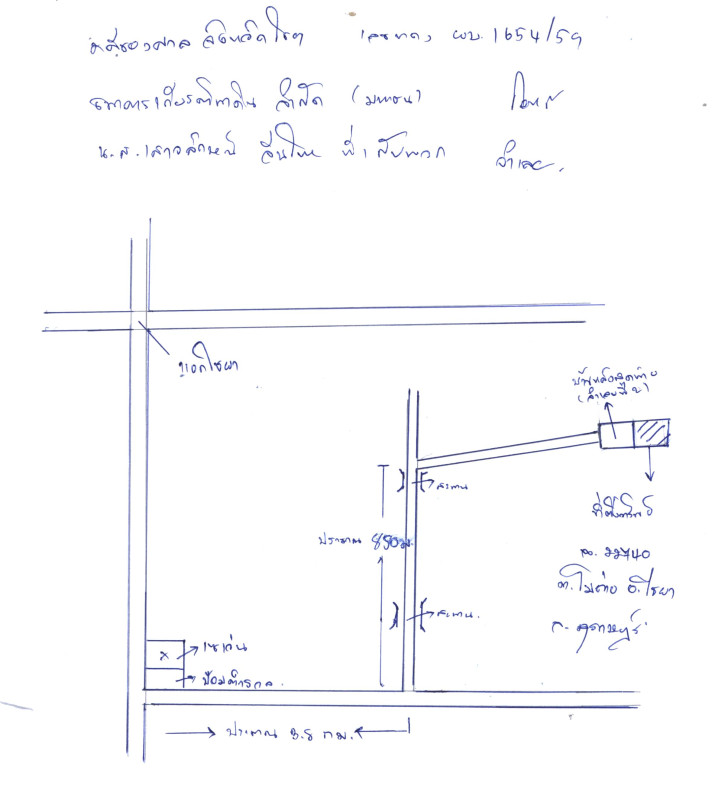 คดีของศาล จังหวัดไชยา เลขแดง ผบ. 1654/59
ธนาคารเกียรตินาคิน จำกัด (มหาชน) โจทก์
น.ส.เสาวลักษณ์ ที่ 1 กับพวก จำเลย.
แยกไชยา
บ้านหลังสุดท้าย
สะพาน
ที่ตั้งทรัพย์
ประมาณ 850 ม.
ฉ. 22740
สะพาน.
ต.โมถ่าย อ.ไชยา
จ. สุราษฎร์
x
ป้อมตำรวจ
ประมาณ 3.5 กม.